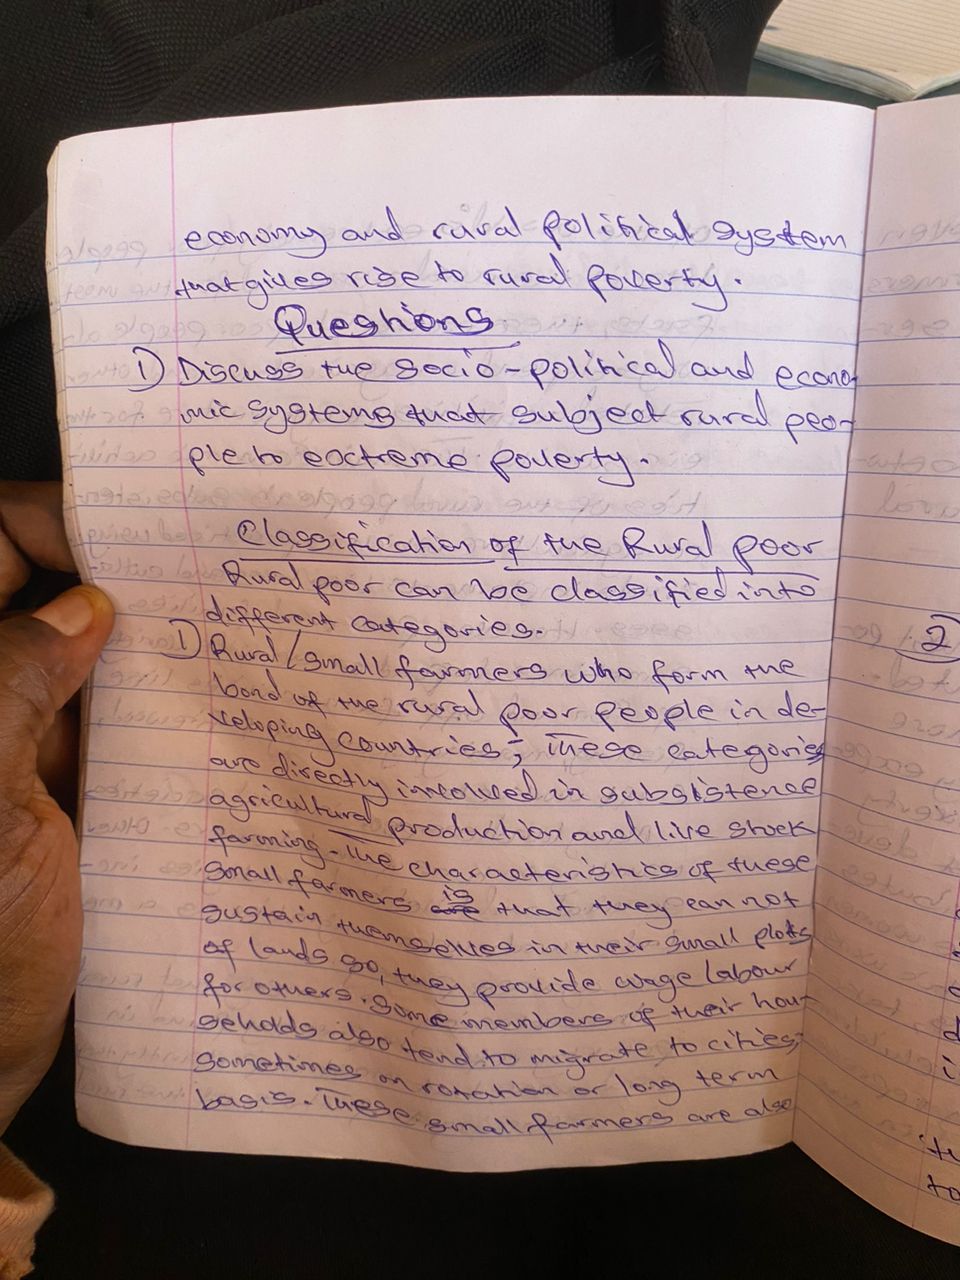 economy and rural political system
that gives rise to rural poverty.
Questions
1) Discuss the socio-political and econo-
mic systems that subject rural peo-
ple to extreme poverty.
Classification of the Rural poor
Rural poor can be classified into
different categories.
1) Rural/small farmers who form the
bond of the rural poor people in de-
veloping countries; These categories
are directly involved in subsistence
agricultural production and live stock
farming. The characteristics of these
small farmers is that they can not
sustain themselves in their small plots
of lands so, they provide wage labour
for others. Some members of their hou-
seholds also tend to migrate to cities;
sometimes on rotation or long term
basis. These small farmers are also
2